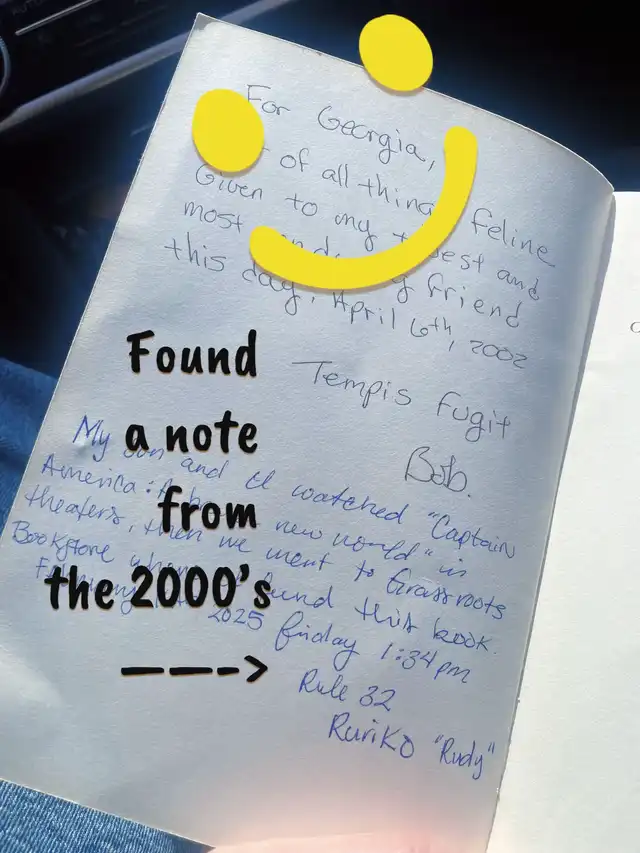 For Georgia,
of all things feline
Given to my and
most friend
this day, April 6th, 2002
Tempis Fugit
Bob.
My son and I watched "Captain
America: new world" in
theaters, then we went to Grassroots
Bookstore found this book.
2025 friday 1:34pm
Rule 32
Ruriko "Rudy"
Found
a note
from
the 2000's
---->